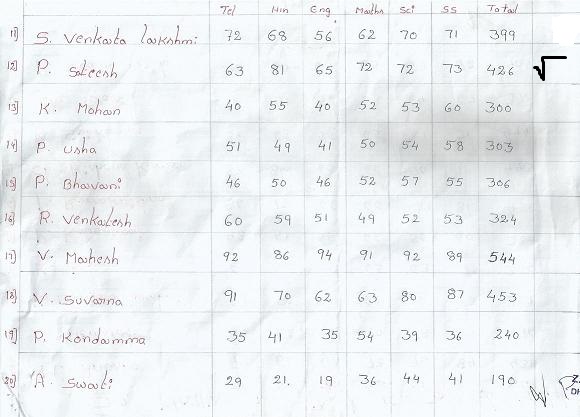 Tel Hin Eng Maths Sci SS Total
11) S. Venkata lakshmi 72 68 56 62 70 71 399
12) P. Sateesh 63 81 65 72 72 73 426 √
13) K. Mohan 40 55 40 52 53 60 300
14) P. Usha 51 49 41 50 54 58 303
15) P. Bhavani 46 50 46 52 57 55 306
16) R. Venkatesh 60 59 51 49 52 53 324
17) V. Mahesh 92 86 94 91 92 89 544
18) V. Suvarna 91 70 62 63 80 87 453
19) P. Kondamma 35 41 35 54 39 36 240
20) A. Swati 29 21. 19 36 44 41 190